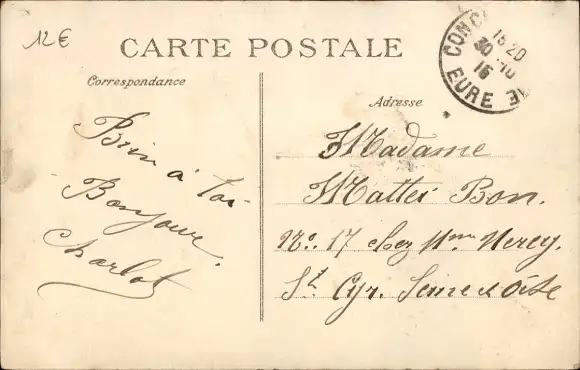 12€
CARTE POSTALE
Correspondance
Bien à toi
Bonjour
Charlot
Adresse
Madame
Mattei Bon.
No. 17 chez Mme Nerey.
St Cyr. Seine et Oise
CONC
15 20
30 -10
16
EURE